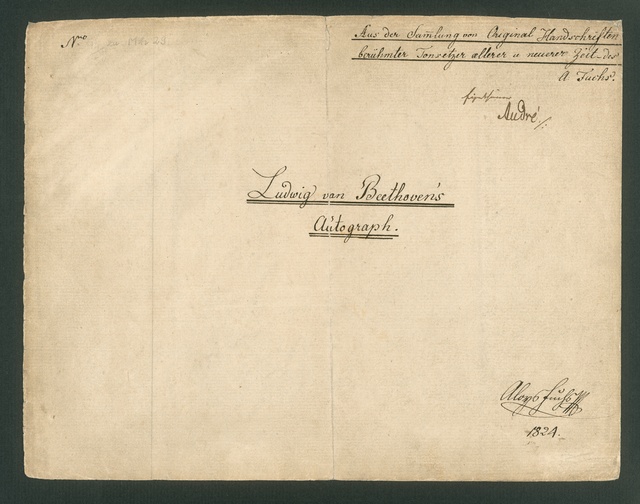 Nro
Aus der Samlung von Original Handschriften
berühmter Tonsetzer ælterer u neuerer Zeit des
A Fuchs.
André
Ludwig van Beethoven's
Autograph.
Aloys Fuchs
1824.